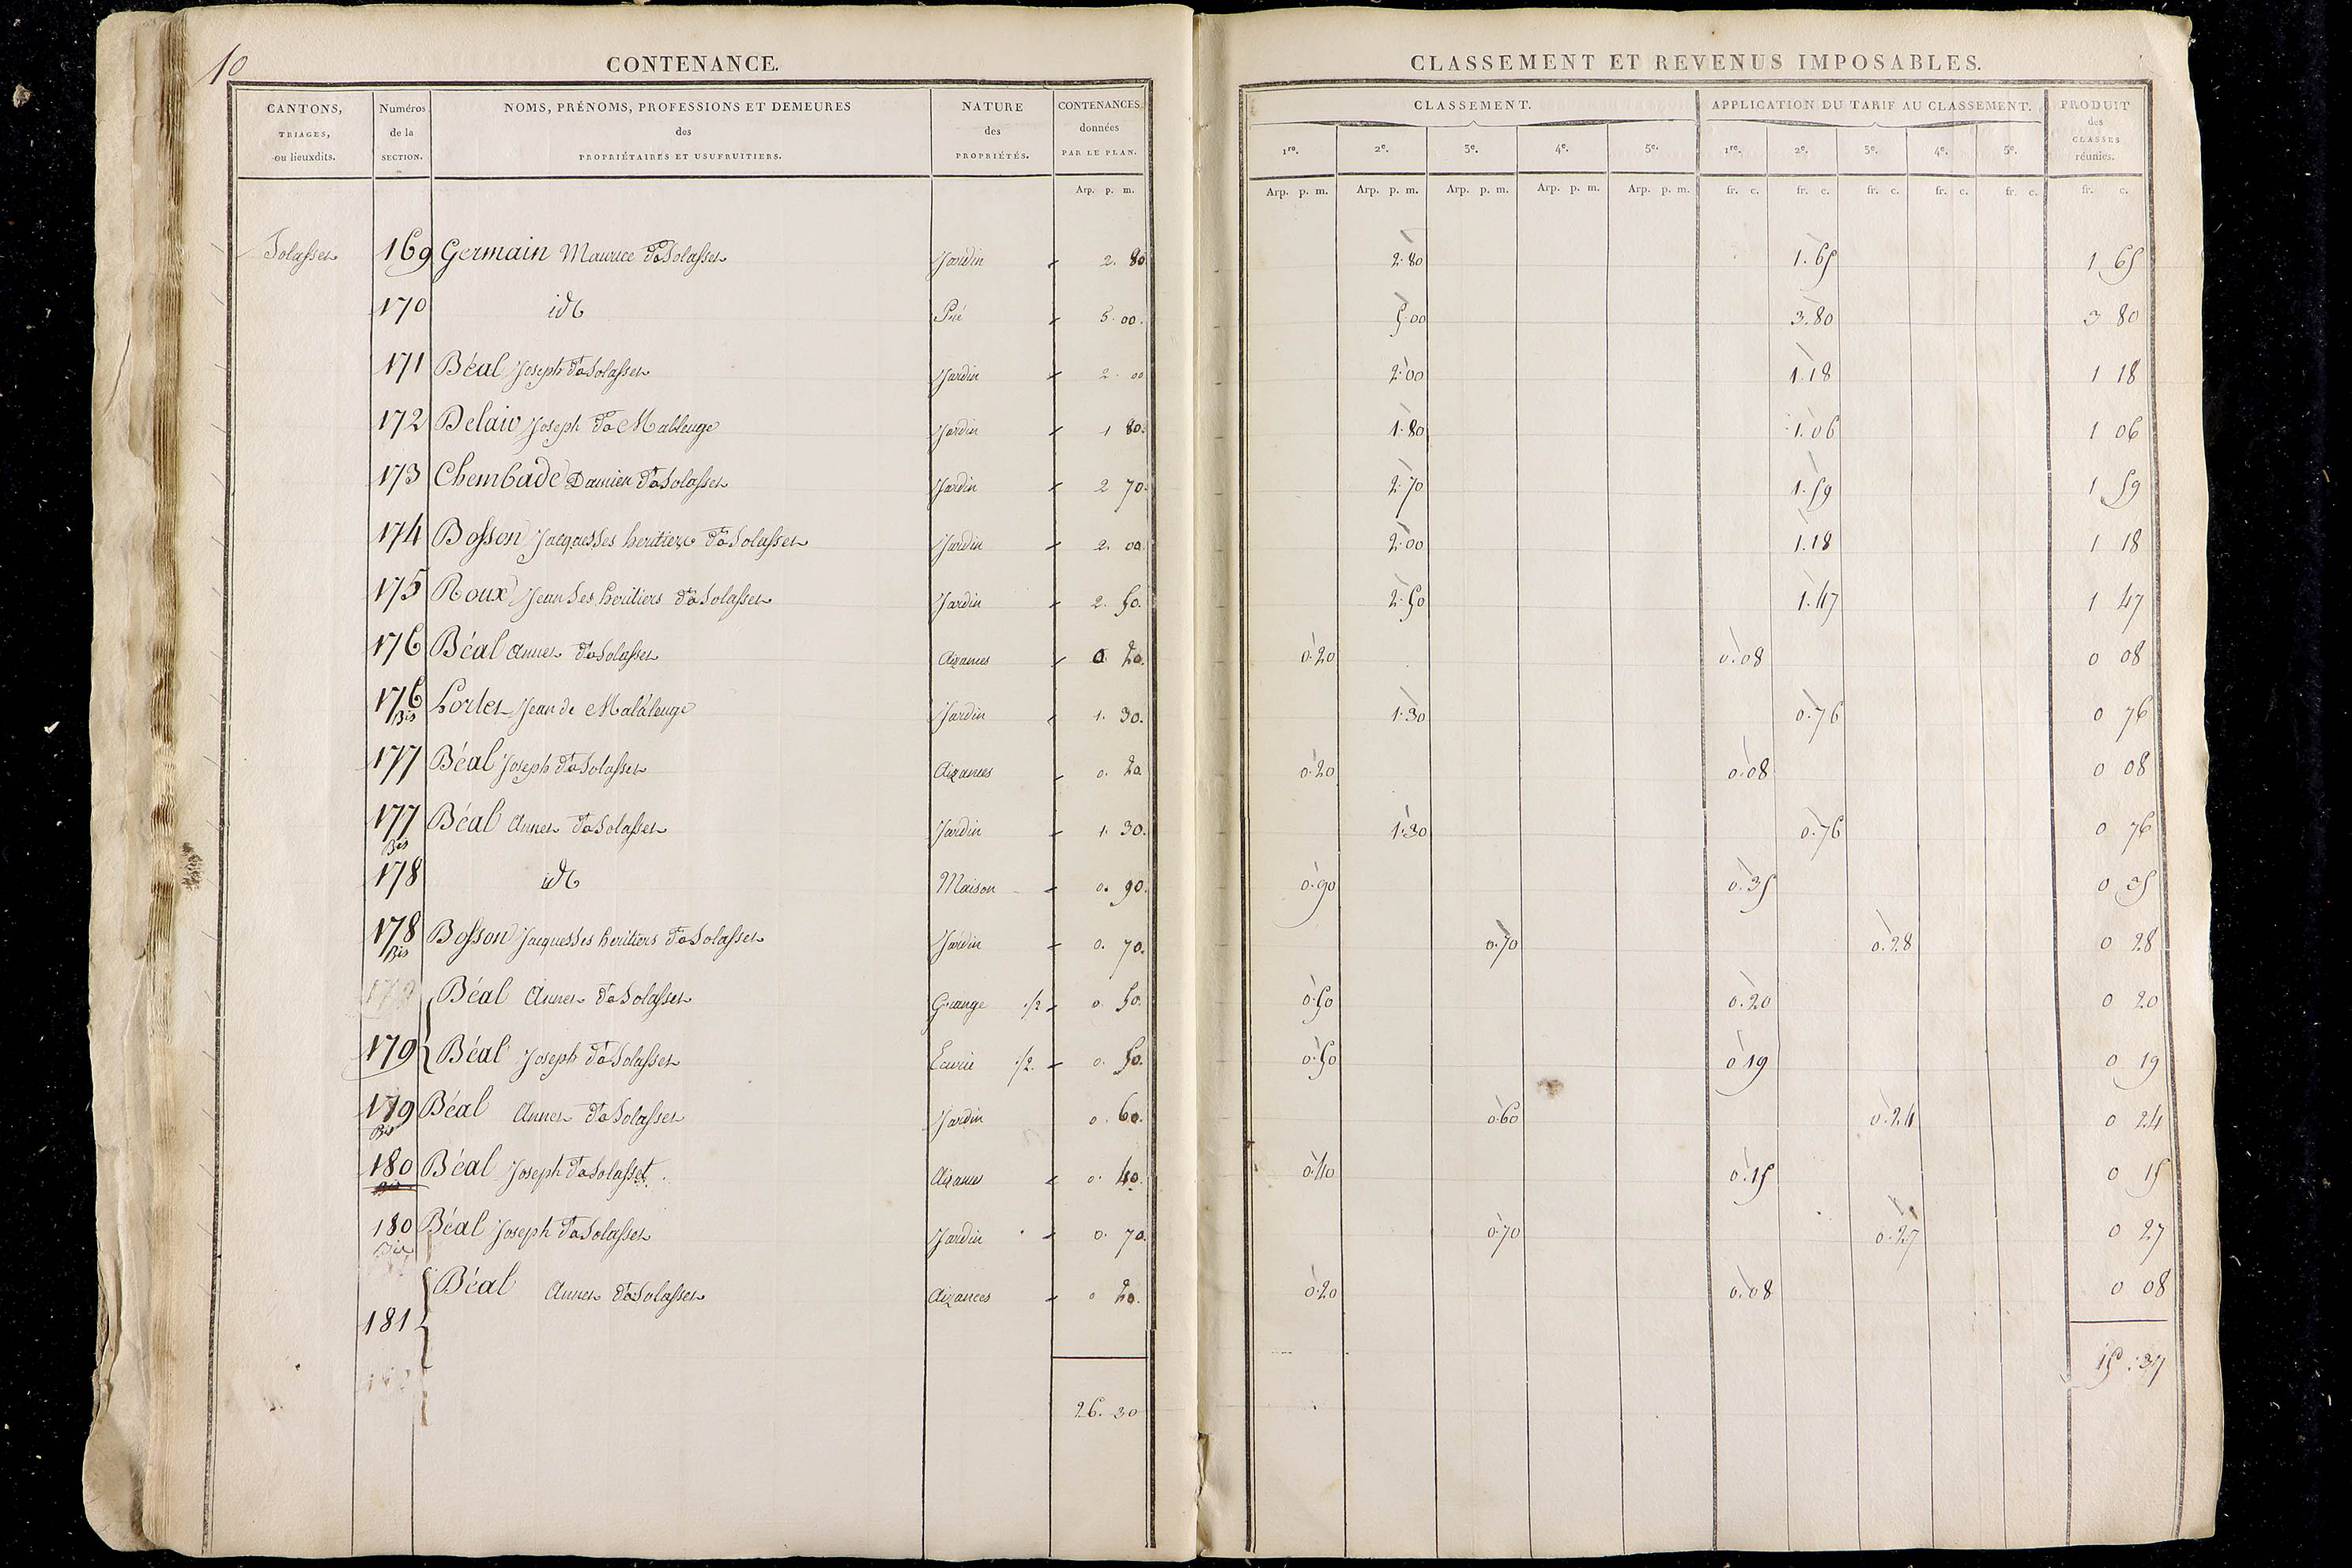 10
CONTENANCE.
CANTONS, TRIAGES, ou lieuxdits.
Numéros de la SECTION.
NOMS, PRÉNOMS, PROFESSIONS ET DEMEURES des PROPRIÉTAIRES ET USUFRUITIERS.
NATURE des PROPRIÉTÉS.
CONTENANCES données PAR LE PLAN.
Arp. p. m.
CLASSEMENT ET REVENUS IMPOSABLES.
CLASSEMENT.
APPLICATION DU TARIF AU CLASSEMENT.
PRODUIT des CLASSES réunies.
1re. 2e. 3e. 4e. 5e. 1re. 2e. 3e. 4e. 5e.
Arp. p. m. Arp. p. m. Arp. p. m. Arp. p. m. Arp. p. m. fr. c. fr. c. fr. c. fr. c. fr. c. fr. c.
Solasses 169 Germain Maurice Solasses Jardin 2. 80 2.80 1.65 1 65
170 id Pré 5.00. 5.00 3.80 3 80
171 Béal Joseph Solasses Jardin 2.00 2.00 1.18 1 18
172 Joseph Jardin 1 80. 1.80 1.06 1 06
173 Chembade Damien Solasses Jardin 2 70. 2.70 1.59 1 59
174 Bosson Jacques Ses heritiers Solasses Jardin 2.00. 2.00 1.18 1 18
175 Roux Jean Ses heritiers Solasses Jardin 2.50. 2.50 1.47 1 47
176 Béal Annes Solasses Aizances 0 20. 0.20 0.08 0 08
176 Bis Jean de Jardin 1.30. 1.30 0.76 0 76
177 Béal Joseph Solasses Aizances 0.20 0.20 0.08 0 08
177 Bis Béal Annes Solasses Jardin 1.30. 1.30 0.76 0 76
178 id Maison 0.90. 0.90 0.35 0 35
178 Bis Bosson Jacques Ses heritiers Solasses Jardin 0.70. 0.70 0.28 0 28
Béal Annes Solasses Grange 1/2 0.50. 0.50 0.20 0 20
179 Béal Joseph Solasses Ecurie 1/2. 0.50. 0.50 0 19 0 19
179 Bis Béal Annes Solasses Jardin 0.60. 0.60 0.24 0 24
180 Béal Joseph Solasses Aizances 0.40. 0.40 0.15 0 15
180 Bis Béal Joseph Solasses Jardin 0.70. 0.70 0.27 0 27
181 Béal Annes Solasses Aizances 0 20. 0.20 0.08 0 08
26.30 15.37